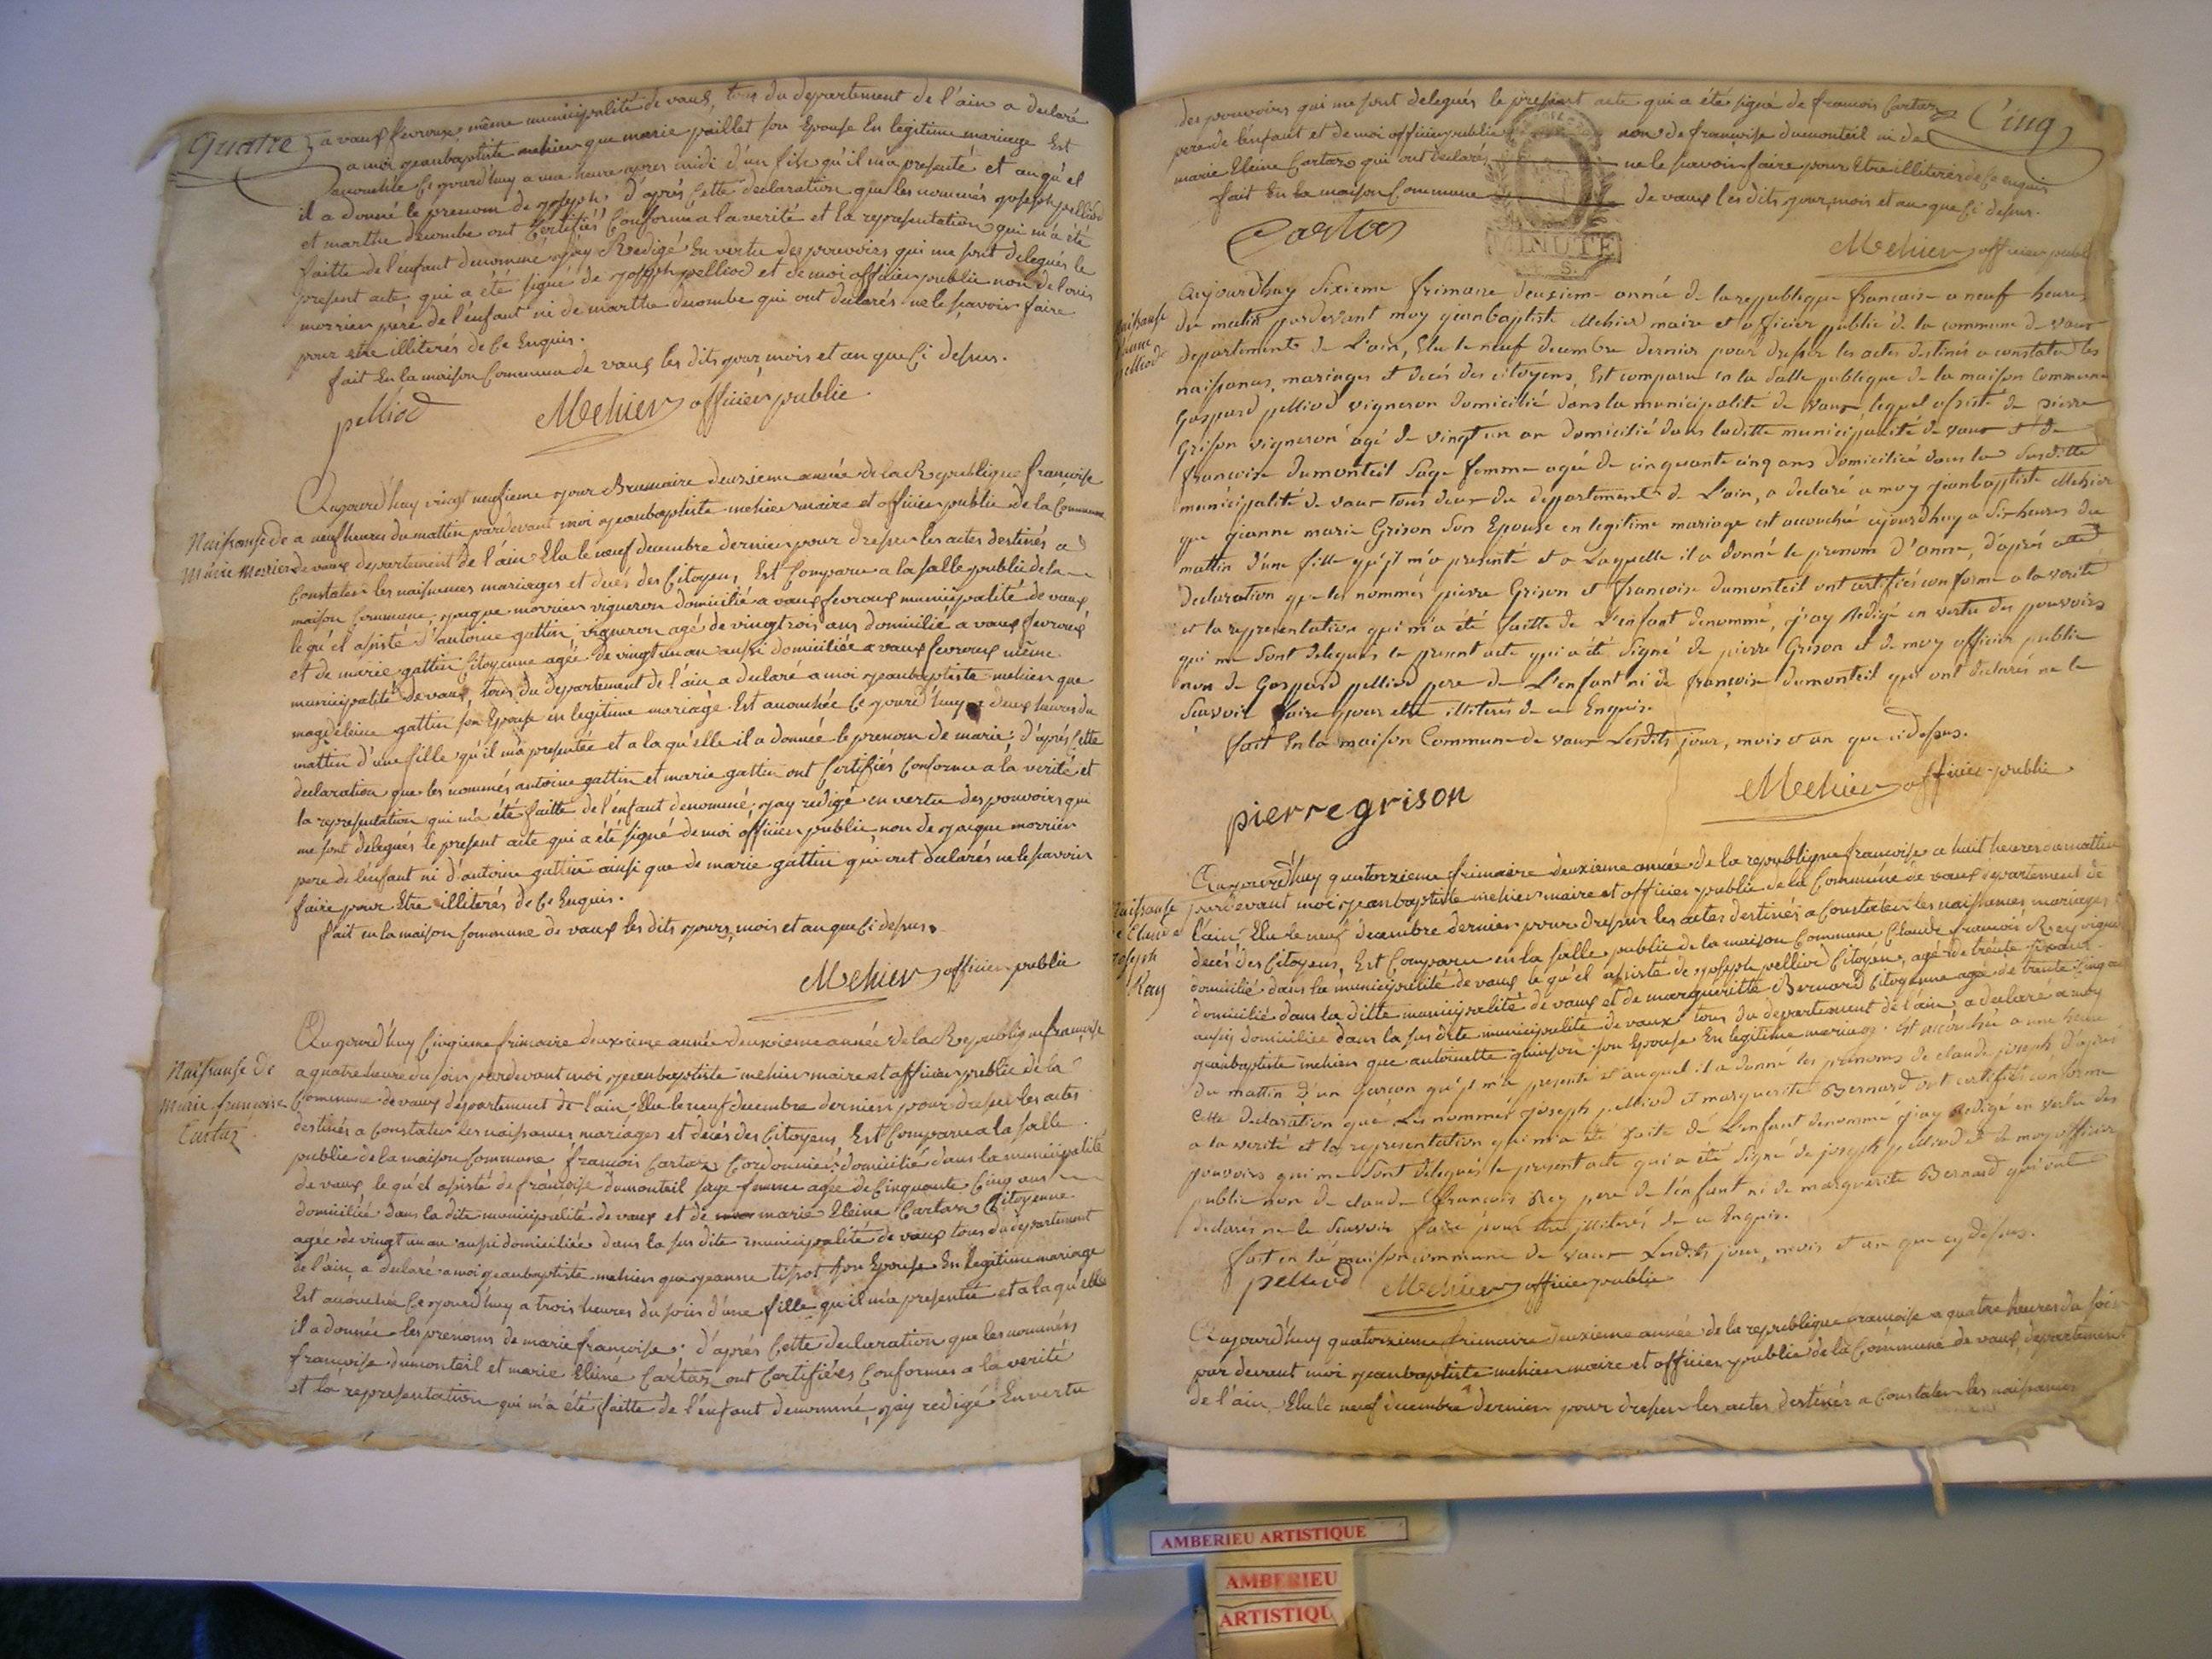 Quatre
a vaux fevroux même municipalité de vaux, tous du departement de l'ain a declaré
a moi jeanbaptiste mehier que marie paillet son Epouse En legitime mariage Est
accouchée Ce jourd'huy a une heure apres midi d'un fils qu'il m'a presenté et auqu'el
il a donné le prenom de joseph, d'aprés Cette declaration que les nommés joseph pelliod
et marthe decombe ont Certifiés Conforme a la verité et la representation qui m'a été
faitte de l'enfant denommé j'ay Redigé En vertu des pouvoirs qui me sont delegués le
present acte qui a été signé de joseph pelliod et de moi officier public non de louis
morrier pere de l'enfant ni de marthe decombe qui ont declarés ne le sçavoir faire
pour etre illiterés de Ce Enquis.
fait En la maison Commune de vaux les dits jour, mois et an que Ci dessus.
pelliod Mehier officier public
Aujourd'huy vingt neufieme jour Brumaire deuxieme année de la Republique francoise
Naissanse de
marie Morrier
a neuf heures du mattin pardevant moi jeanbaptiste mehier maire et officier public de la Commune
de vaux departement de l'ain Elu le neuf decembre dernier pour dresser les actes destinés a
Constater les naissances mariages et decés des Citoyens, Est Comparu a la salle public de la
maison Commune, jaque morrier vigneron domicilié a vaux fevroux municipalité de vaux
le qu'el assisté d'antoine gattin vigneron agé de vingt trois ans domicilié a vaux fevroux
et de marie gattin Citoyenne agée de vingt un an aussi domiciliée a vaux fevroux même
municipalité de vaux, tous du departement de l'ain a declaré a moi jeanbaptiste mehier que
magdeleine gattin son Epouse en legitime mariage Est accouchée Ce jourd'huy a deux heures du
mattin d'une fille qu'il m'a presentée et a la qu'elle il a donnée le prenom de marie; d'aprés Cette
declaration que les nommés antoine gattin et marie gattin ont Certifiés Conforme a la verité et
la representation qui m'a été faitte de l'enfant denommé, j'ay redigé en vertu des pouvoirs qui
me sont delegués le present acte qui a été signé de moi officier public non de jaque morrier
pere de l'enfant ni d'antoine gattin ainsi que de marie gattin qui ont declarés ne le sçavoir
faire pour Etre illiterés de Ce Enquis.
fait en la maison Commune de vaux les dits jours, mois et an que Ci dessus.
Mehier officier public
Naissanse de
marie francoise
Cartaz
Aujourd'huy Cinqieme frimaire deuxieme année deuxieme année de la Republique francoise
a quatre heure du soir pardevant moi jeanbaptiste mehier maire et officier public de la
Commune de vaux departement de l'ain, Elu le neuf decembre dernier pour dresser les actes
destinés a Constater les naissances mariages et decés des Citoyens, Est Comparu a la salle
public de la maison Commune francois Cartaz Cordonnier domicilié dans la municipalité
de vaux le qu'el assisté de françoise dumonteil sage femme agée de Cinquante Cinq ans
domiciliée dans la dite municipalité de vaux et de marie Eleine Cartaz Citoyenne
agée de vingt un an aussi domiciliée dans la sus dite municipalité de vaux tous du departement
de l'ain a declaré a moi jeanbaptiste mehier que jeanne tissot son Epouse En legitime mariage
Est accouchée Ce jourd'huy a trois heures du soir d'une fille qu'il m'a presentée et a la qu'elle
il a donnée les prenoms de marie francoise. d'aprés Cette declaration que les nommées
françoise dumonteil et marie Eleine Cartaz ont Certifiées Conformes a la verité
et la representation qui m'a été faitte de l'enfant denommé, j'ay redigé En vertu
Cinq
des pouvoirs qui me sont delegués le present acte qui a été signé de francois Cartaz
pere de l'enfant et de moi officier public non de françoise dumonteil ni de
marie Eleine Cartaz qui ont declarés ne le sçavoir faire pour Etre illiterés de Ce enquis
fait En la maison Commune de vaux les dits jour, mois et an que Ci dessus.
MINUTE
Cartaz Mehier officier public
naissanse
d'anne
pelliod
Aujourdhuy Sixieme frimaire deuxieme année de la republique francaise a neuf heures
du matin pardevant moy jeanbaptiste Mehier maire et officier public de la commune de vaux
departement de L'ain, Elu le neuf decembre dernier pour dresser les actes destinés a constater les
naissances, mariages et decés des citoyens, Est comparu en la Salle publique de la maison Commune
Gaspard pelliod vigneron domicilié dans la municipalité de vaux lequel assisté de pierre
Grison vigneron agé de vingt un an domicilié dans laditte municipalité de vaux et de
francoise dumonteil Sage femme agée de cinquante cinq ans domiciliée dans la susditte
municipalité de vaux tous deux du departement de L'ain, a declaré a moy jeanbaptiste Mehier
que jeanne marie Grison son Epouse en legitime mariage est accouchée ajourdhuy a Six heures du
mattin d'une fille qu'il m'a presenté et a Laquelle il a donné le prenom d'anne, d'aprés cette
declaration que les nommés pierre Grison et francoise dumonteil ont certifiés conforme a la verité
et la representation qui m'a été faitte de L'enfant denommé, j'ay Redigé en vertu des pouvoirs
qui me sont delegués le present acte qui a été Signé de pierre Grison et de moy officier public
non de Gaspard pelliod pere de L'enfant ni de françoise dumonteil qui ont declarés ne le
Scavoir faire pour etre illiterés de ce Enquis.
fait En la maison Commune de vaux Lesdits jour, mois et an que cidessus.
pierre grison Mehier officier public
naissanse
de Claude
joseph
Rey
Aujourd'huy quatorzieme frimaire deuxieme année de la republique francoise a huit heures du mattin
pardevant moi jeanbaptiste mehier maire et officier public de la Commune de vaux departement de
l'ain Elu le neuf decembre dernier pour dresser les actes destinés a Constater les naissances mariages
decés des Citoyens, Est Comparu en la salle public de la maison Commune Claude francois Rey vigneron
domicilié dans la municipalité de vaux le qu'el assisté de joseph pelliod Citoyen, agé de trente
domicilié dans la ditte municipalité de vaux et de margueritte Bernard Citoyenne agée de trente Cinq ans
aussi domiciliée dans la susdite municipalité de vaux tous du departement de l'ain a declaré a moy
jeanbaptiste mehier que antoinette son Epouse En legitime mariage est accouchée a une heure
du mattin d'un garcon qu'il m'a presenté et auquel il a donné les prenoms de claude joseph d'aprés
cette declaration que Les nommés joseph pelliod et marguerite Bernard ont certifiés conforme
a la verité et la representation qui m'a été faite de L'enfant denommé j'ay Redigé en vertu des
pouvoirs qui me sont delegués le present acte qui a été signé de joseph pelliod et de moy officier
public non de claude francois Rey pere de l'enfant ni de marguerite Bernard qui ont
declarés ne le Scavoir faire pour etre illiterés de ce Enquis.
fait en la maison commune de vaux Lesdits jour, mois et an que cy dessus.
pelliod Mehier officier public
Aujourd'huy quatorzieme frimaire deuxieme année de la republique francoise a quatre heures du soir
par devant moi jeanbaptiste mehier maire et officier public de la Commune de vaux departement
de l'ain, Elu le neuf decembre dernier pour dresser les actes destinés a Constater les naissances
AMBERIEU ARTISTIQUE
AMBERIEU
ARTISTIQU